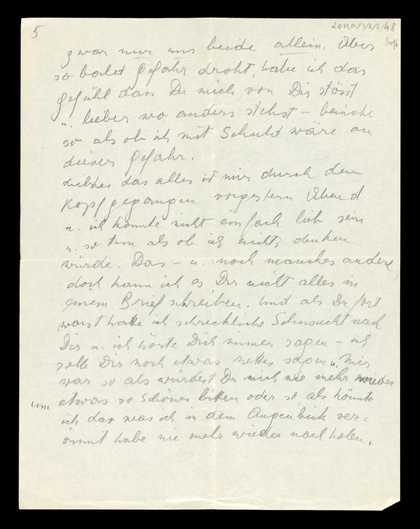 5
zwar nur uns beide allein. Aber
so bald Gefahr droht, habe ich das
Gefühl dass Du mich von Dir stösst
u. lieber wo anders stehst – beinahe
so als ob ich mit Schuld wäre an
dieser Gefahr.
das alles ist mir durch den
Kopf gegangen vorgestern Abend
u. ich konnte nicht einfach lieb sein
u. so tun als ob ich nichts denken
würde. Das – u. noch manches andere
doch kann ich es Dir nicht alles in
einem Brief schreiben. Und als Du fort
warst hatte ich schreckliche Sehnsucht nach
Dir u. ich hörte Dich immer sagen – ich
solle Dir noch etwas nettes sagen u. mir
war so als würdest Du mich nie mehr
um etwas so Schönes bitten oder so als könnte
ich das was ich in dem Augenblick ver-
säumt habe nie mehr wieder nach holen.